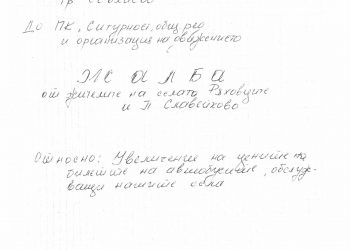 До ПК „Сигурност, общ. ред
и организация на движението
ЖАЛБА
от жителите на селата Ряховците
и П. Славейково
Относно: Увеличение на цените на
билетите на автобусите, обслуж-
ващи нашите села